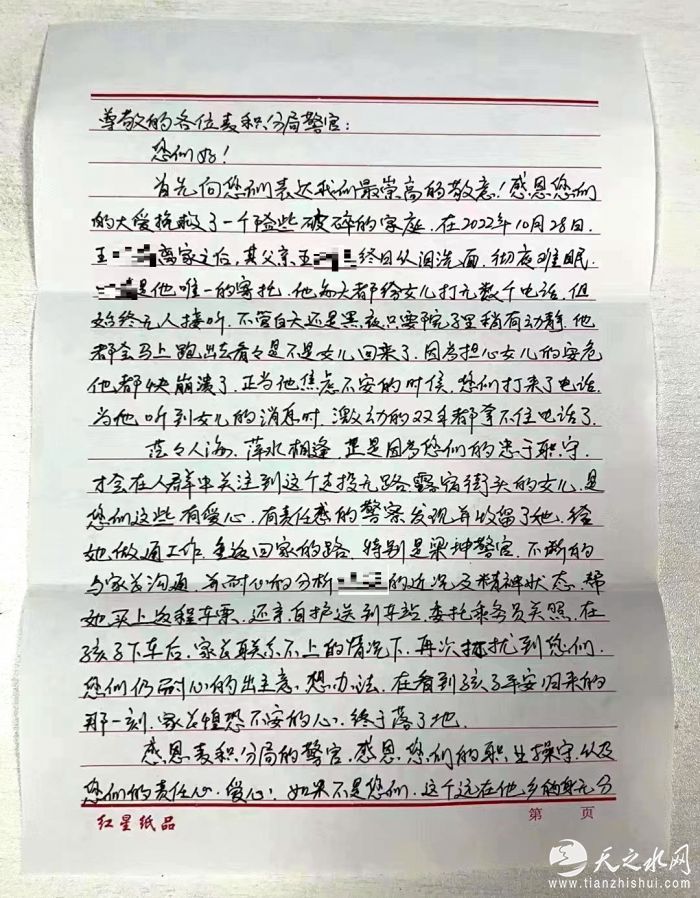 尊敬的各位麦积分局警官：
您们好！
首先向您们表达我们最崇高的敬意！感恩您们
的大爱挽救了一个险些破碎的家庭。在2022年10月28日，
王离家之后，其父亲王终日以泪洗面，彻夜难眠。
是他唯一的寄托，他每天都给女儿打无数个电话，但
始终无人接听，不管白天还是黑夜只要院子里稍有动静，他
都会马上跑出去看看是不是女儿回来了，因为担心女儿的安危
他都快崩溃了，正当他焦虑不安的时候，您们打来了电话，
当他听到女儿的消息时，激动的双手都拿不住电话了。
茫々人海，萍水相逢，正是因为您们的忠于职守，
才会在人群中关注到这个走投无路露宿街头的女儿，是
您们这些有爱心，有责任感的警察发现并收留了她，给
她做通工作，重返回家的路，特别是梁坤警官，不断的
与家长沟通，并耐心的分析的近况及精神状态，帮
她买上返程车票，还亲自护送到车站，委托乘务员关照，在
孩子下车后，家长联系不上的情况下，再次打扰到您们，
您们仍耐心的出主意，想办法，在看到孩子平安归来的
那一刻，家长惶恐不安的心，终于落了地。
感恩麦积分局的警官，感恩您们的职业操守，以及
您们的责任心，爱心！如果不是您们，这个远在他乡的身无分
红星纸品
第 页
天之水网
www.tianzhishui.com